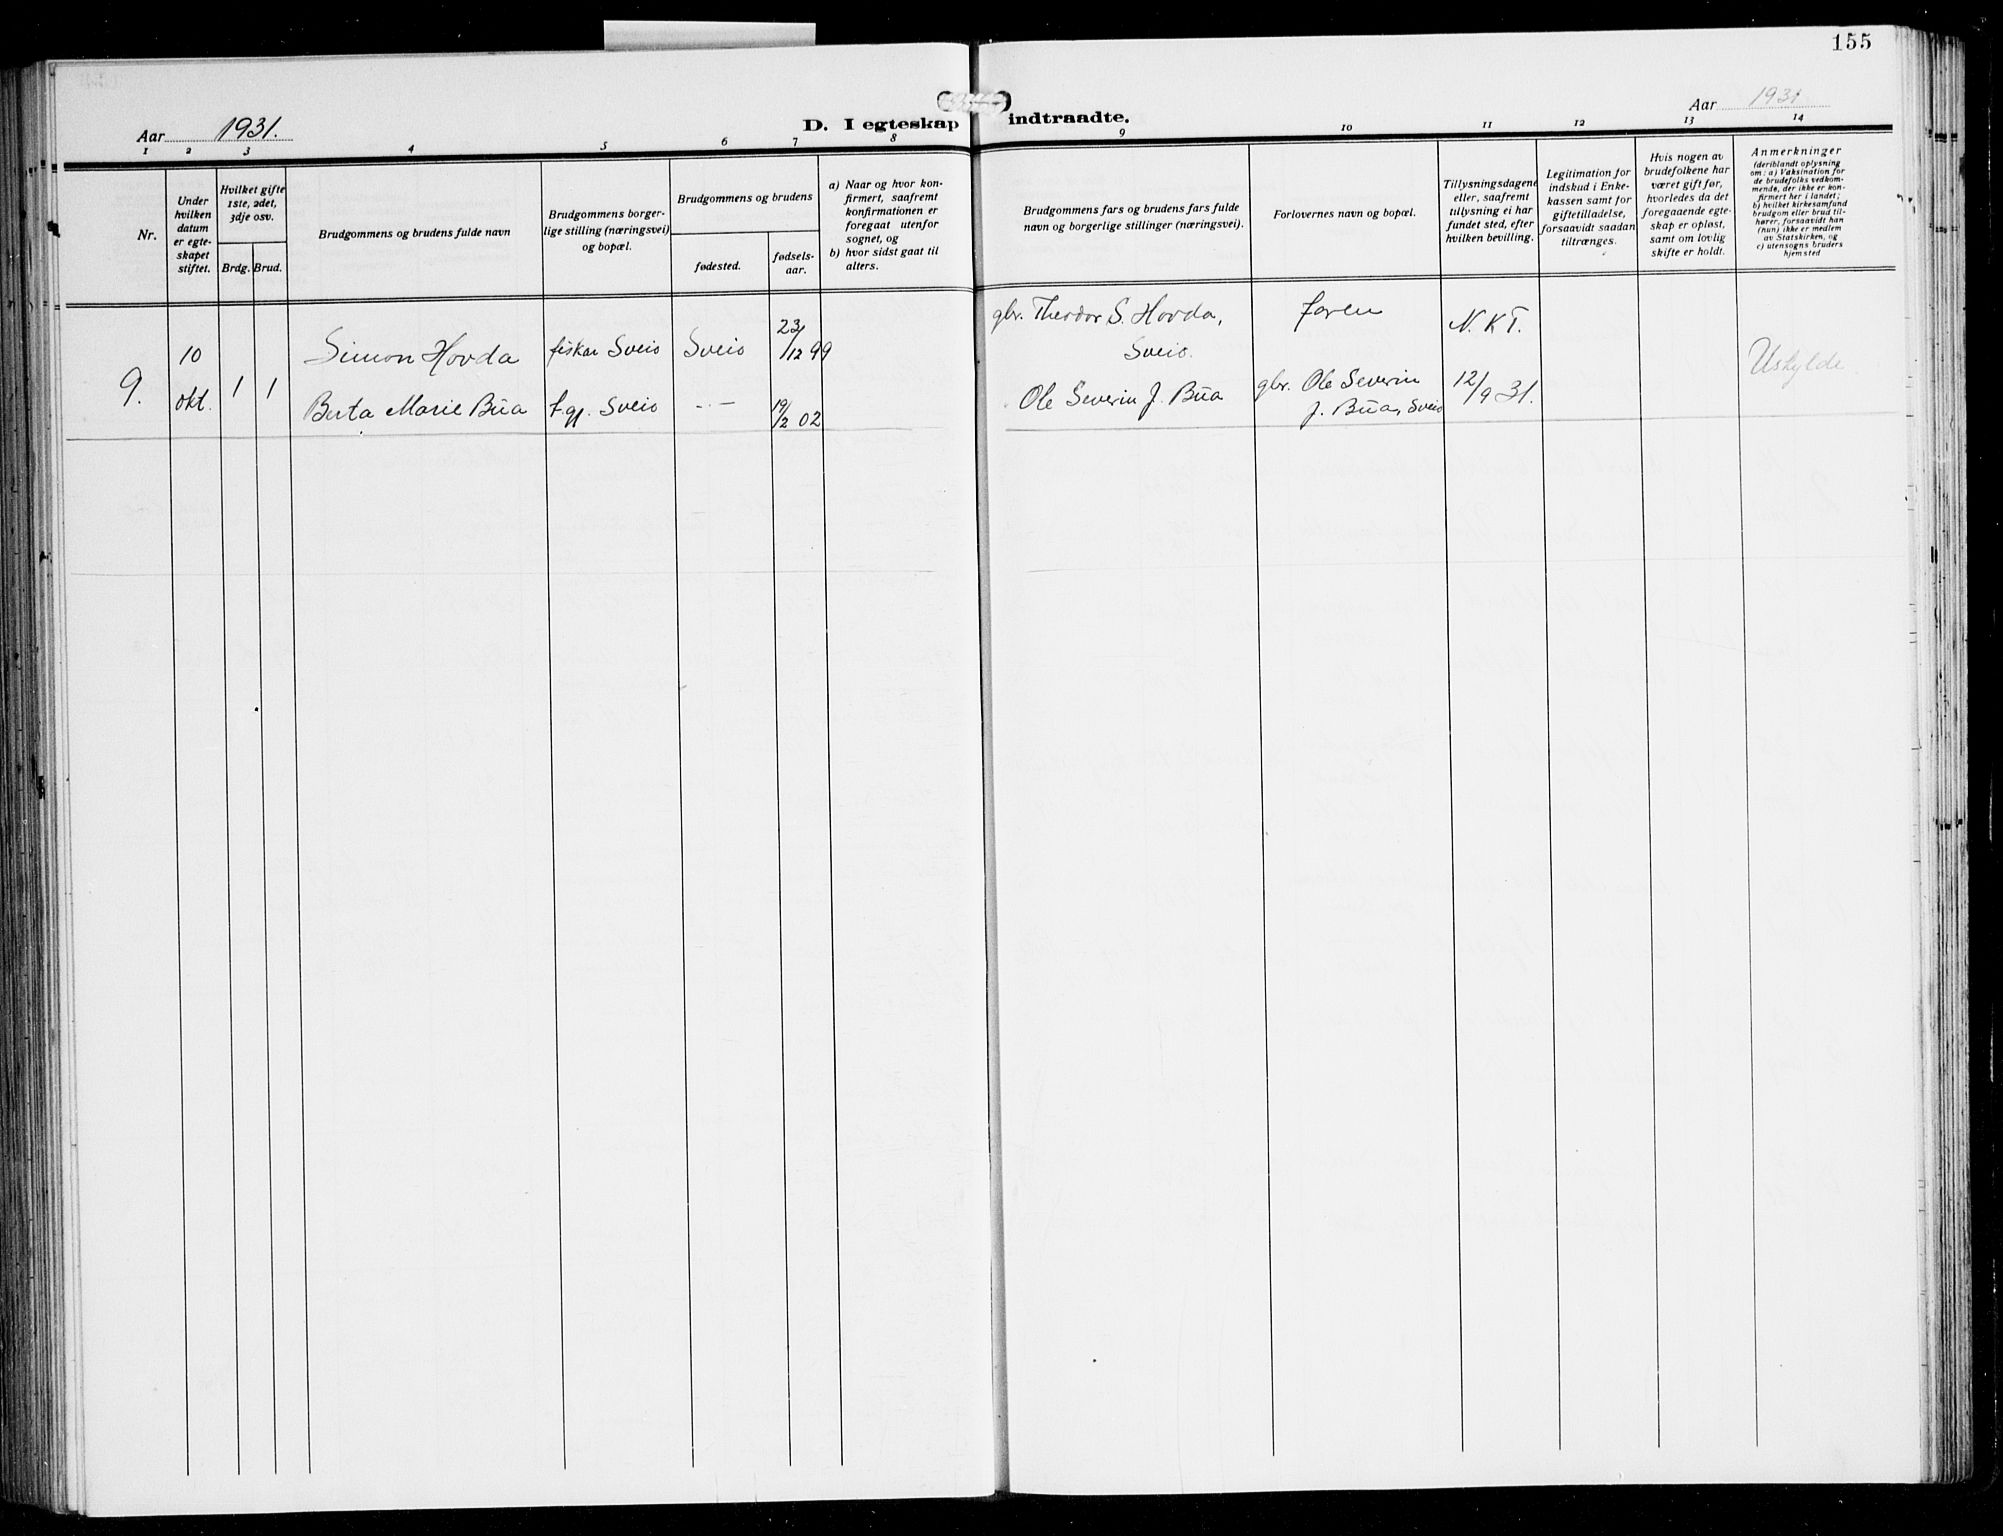 155
Aar 1931.
D. I egteskap indtraadte.
Aar 1931
1 2 3 4 5 6 7 8 9 10 11 12 13 14
Nr.
Under
hvilken
datum
er egte-
skapet
stiftet.
Hvilket gifte
1ste, 2det,
3dje osv.
Brdg. Brud.
Brudgommens og brudens fulde navn
Brudgommens borger-
lige stilling (næringsvei)
og bopæl.
Brudgommens og brudens
fødested.
fødsels-
aar.
a) Naar og hvor kon-
firmert, saafremt
konfirmationen er
foregaat utenfor
sognet, og
b) hvor sidst gaat til
alters.
Brudgommens fars og brudens fars fulde
navn og borgerlige stillinger (næringsvei).
Forlovernes navn og bopæl.
Tillysningsdagene
eller, saafremt
tillysning ei har
fundet sted, efter
hvilken bevilling.
Legitimation for
indskud i Enke-
kassen samt for
giftetilladelse,
forsaavidt saadan
tiltrænges.
Hvis nogen av
brudefolkene har
været gift før,
hvorledes da det
foregaaende egte-
skap er opløst,
samt om lovlig
skifte er holdt.
Anmerkninger
(deriblandt oplysning
om: a) Vaksination for
de brudefolks vedkom-
mende, der ikke er kon-
firmert her i landet;
b) hvilket kirkesamfund
brudgom eller brud til-
hører, forsaavidt han
(hun) ikke er medlem
av Statskirken, og
c) utensogns bruders
hjemsted
9.
10
okt.
1 1
Simon Hovda
fiskar Sveio
Sveio
23/12 99
gbr. Theodor S. Hovda,
Sveio.
faren
N. K T.
Berta Marie Bua
t.gj. Sveio
- - -
19/2 02
Ole Severin J. Bua
gbr. Ole Severin
J. Bua, Sveio
12/9 31.
Uskylde